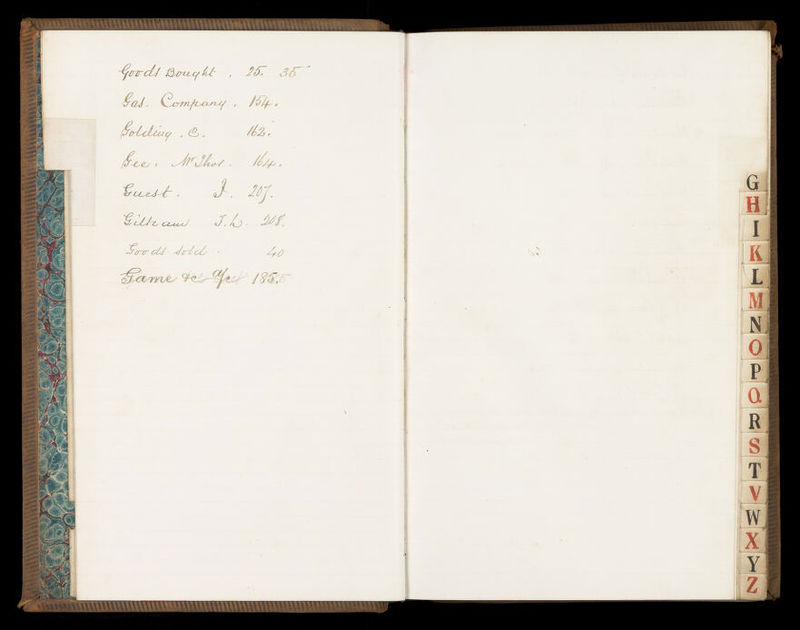 Goods Bought . 25. 35
Gas. Company . 154.
Golding . C. 162.
Gee . Mr Thos . 164.
Guest . J. 207.
J. h. 208.
Goods sold . 40
Game &c 185.
G
H
I
K
L
M
N
O
P
Q.
R
S
T
V
W
X
Y
Z